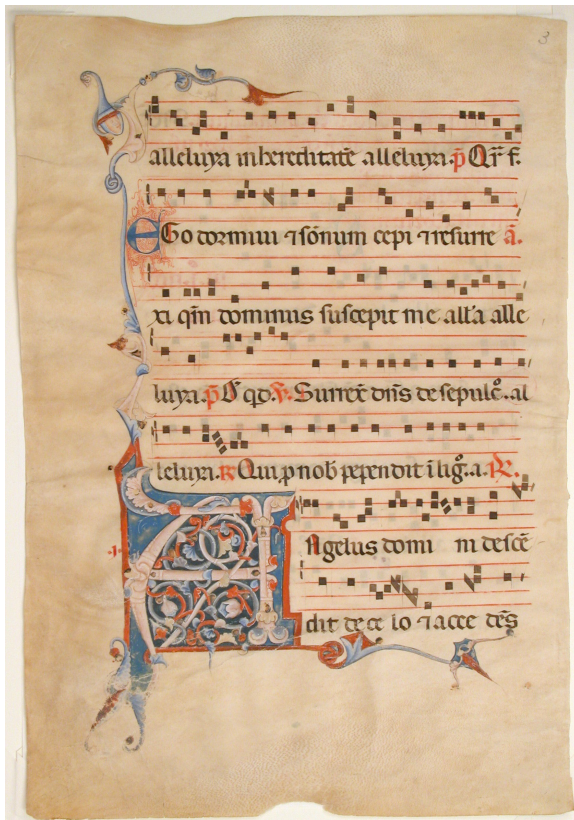 3
alleluya in hereditatē alleluya. p̄ Qr̄ f.
EGo dormiui ⁊ sōnum cepi ⁊ resurre ā.
xi qm̄ dominus suscepit me. all'a alle
luya. p̄ qd. Surrex̄ dn̄s de sepulc̊. al
leluya. Qui p nob pependit ī lig̊. a.
ANgelus domi ni descē
dit de ce lo ⁊ acce dēs